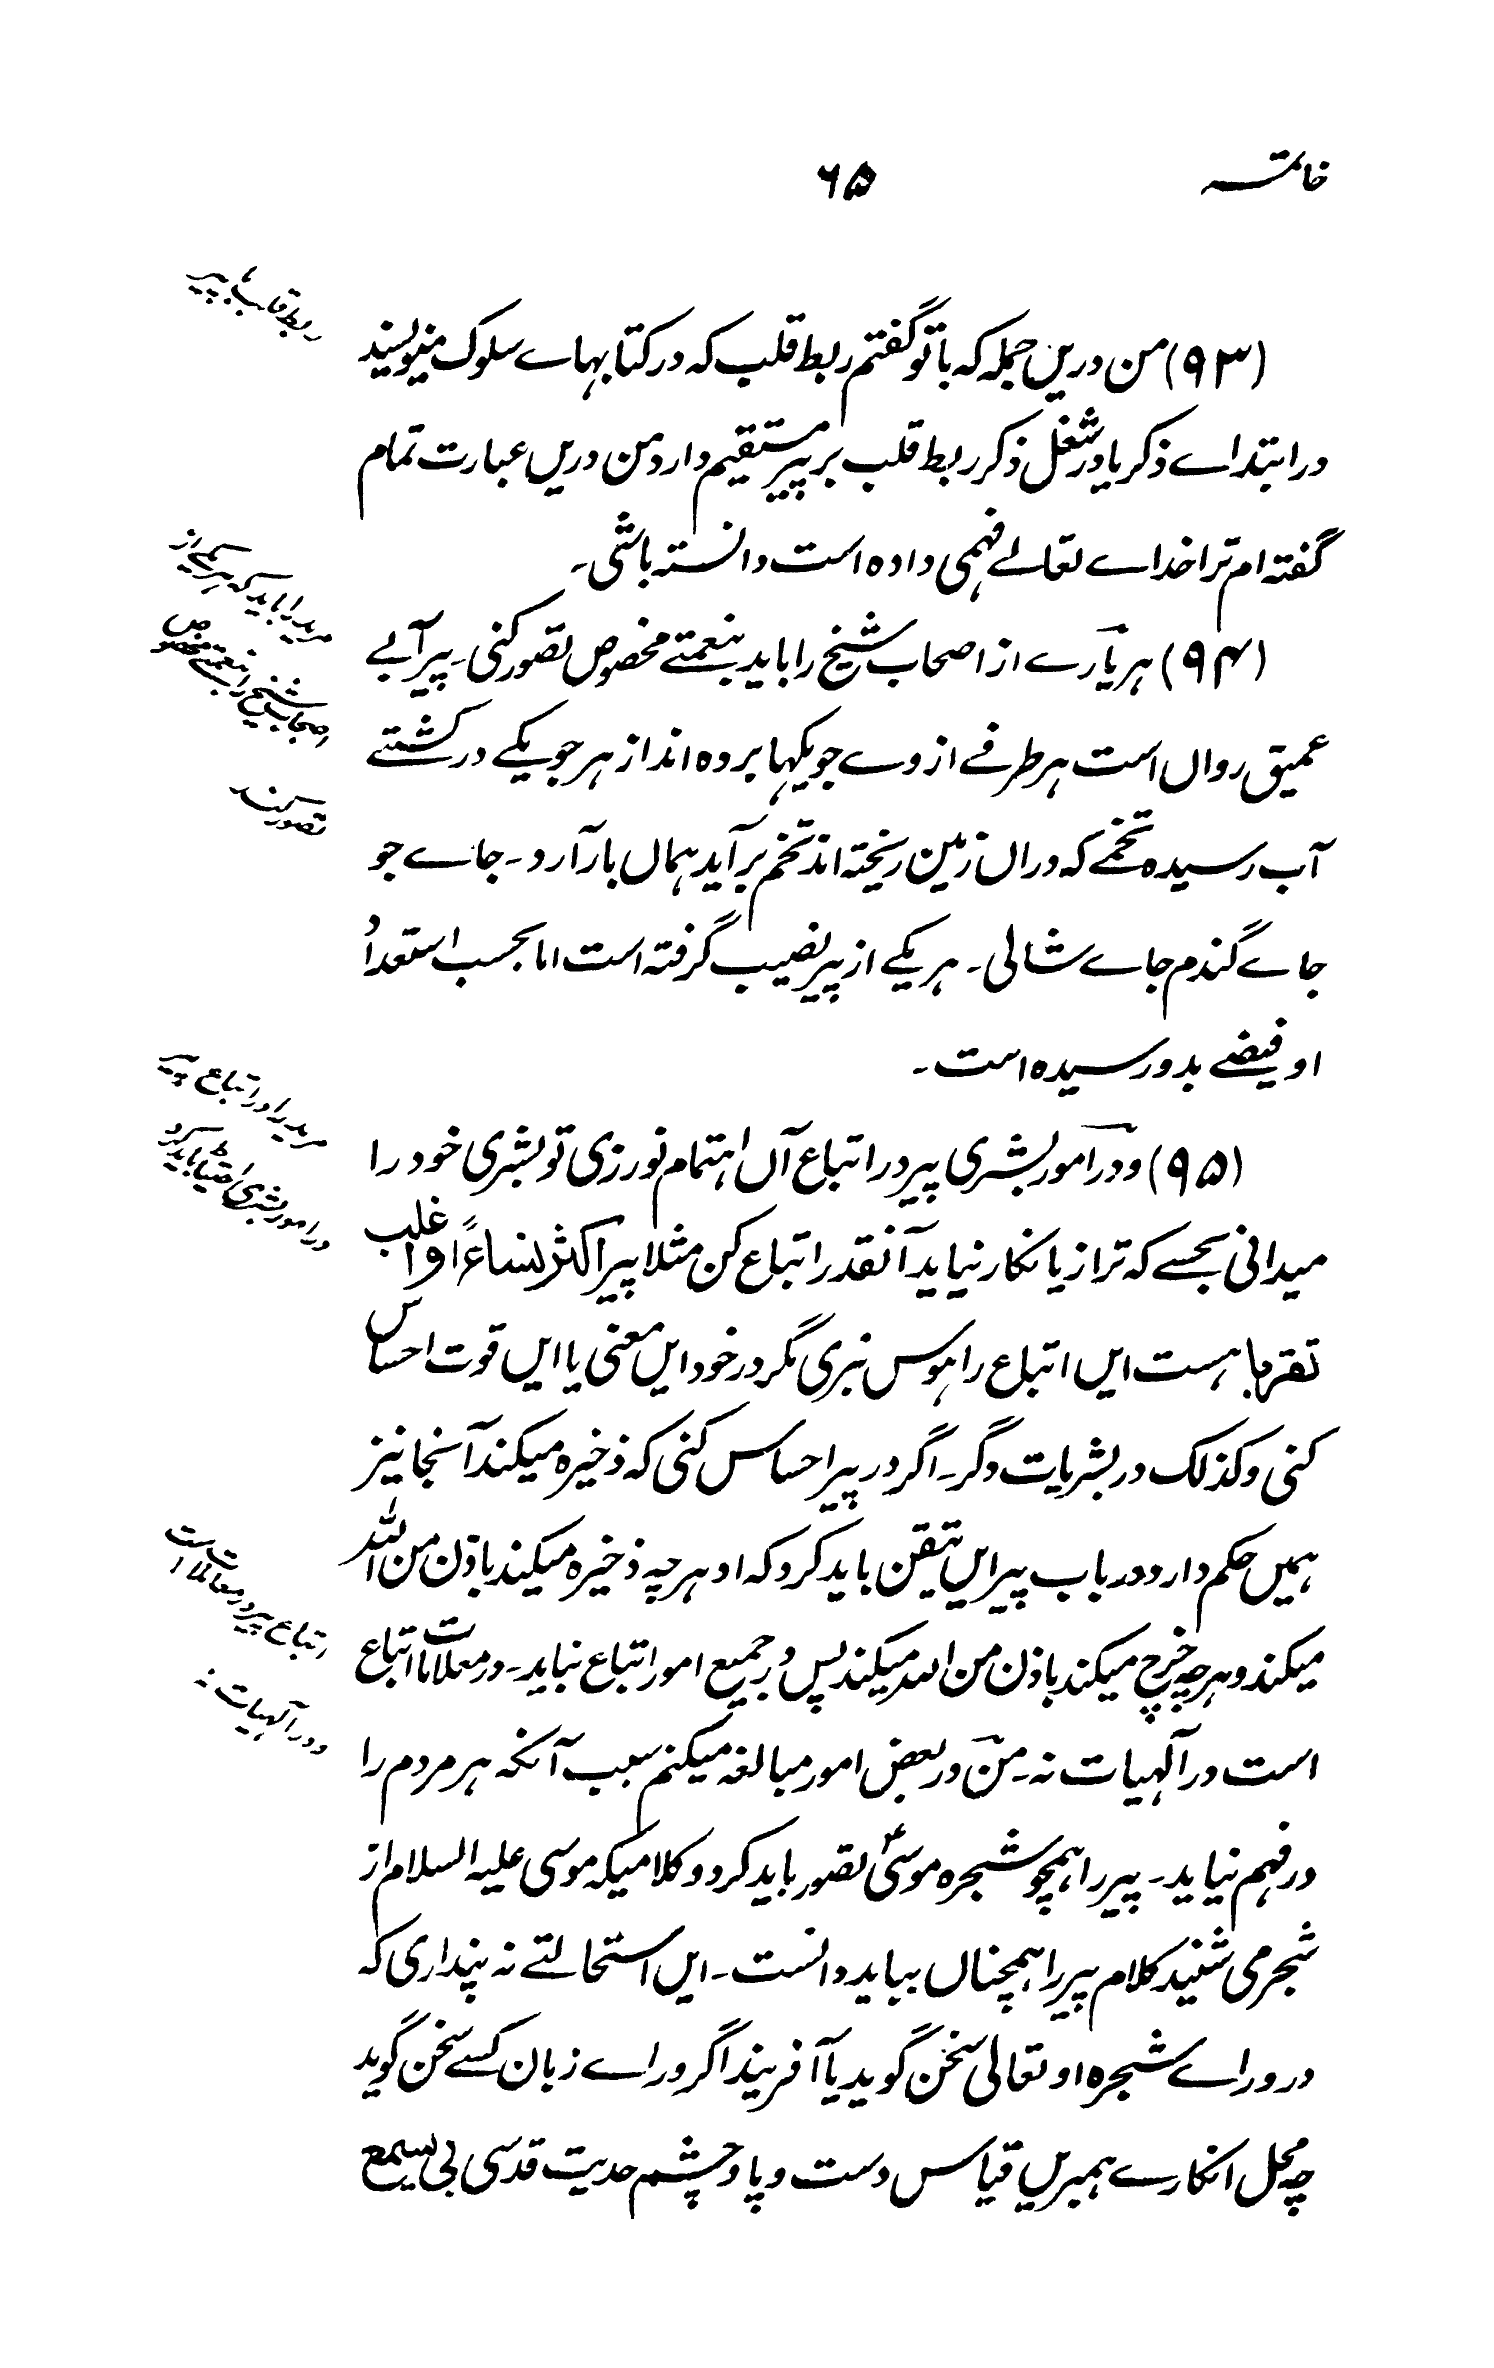 خاتمہ
۶۵
ربط قلب بہ پیر
(۹۳) من دریں جملہ کہ با تو گفتم ربط قلب کہ در کتابہاے سلوک مینویسند
در ابتداے ذکر یا در شغل ذکر ربط قلب بر پیر مستقیم دارد من دریں عبارت تمام
گفتہ ام ترا خداے تعالے فہمی دادہ است دانستہ باشی۔
مرید را باید کہ ہر یکے از
اصحاب شیخ را بنعمتے مخصوص
تصور کند
(۹۴) ہر یارے از اصحاب شیخ را باید بنعمتے مخصوص تصور کنی۔ پیر آبے
عمیق رواں است ہر طرفے از وے جویکہا بردہ اند از ہر جویکے در کشتے
آب رسیدہ تخمے کہ دراں زمین ریختہ اند تخم بر آید ہماں بار آرد۔ جاے جو
جاے گندم جاے شالی۔ ہر یکے از پیر نصیب گرفتہ است اما بحسب استعداد
او فیضے بدو رسیدہ است۔
مرید را در اتباع پیر
در امور بشری احتیاط باید کرد
(۹۵) و در امور بشری پیر در اتباع آں اہتمام نورزی تو بشری خود را
میدانی بحسے کہ ترا زیانکار نیاید آنقدر اتباع کن مثلا پیر اکثر لنساءً او اغلب
تقربا ہست ایں اتباع را ہوس نبری مگر در خود ایں معنی یا ایں قوت احساس
کنی و کذلک در بشریات دگر۔ اگر در پیر احساس کنی کہ ذخیرہ میکند آنجا نیز
ہمیں حکم دارد و در باب پیر ایں تیقن باید کرد کہ او ہر چہ ذخیرہ میکند باذن من اللہ
میکند و ہر چہ خرچ میکند باذن من اللہ میکند پس در جمیع امور اتباع نباید۔ در معاملات اتباع
اتباع پیر در معاملات است
و در آلہیات نہ
است در آلہیات نہ۔ من در بعض امور مبالغہ میکنم سبب آنکہ ہر مردم را
در فہم نیاید۔ پیر را ہمچو شجرہ موسیٰؑ تصور باید کرد و کلامیکہ موسی علیہ السلام از
شجر می شنید کلام پیر را ہمچناں بباید دانست۔ ایں استحالتے نہ پنداری کہ
در وراے شجرہ او تعالی سخن گوید یا آفریند اگر وراے زبان کسے سخن گوید
چہ محل انکارے ہمبریں قیاس دست و پا و چشم حدیث قدسی بی یسمع